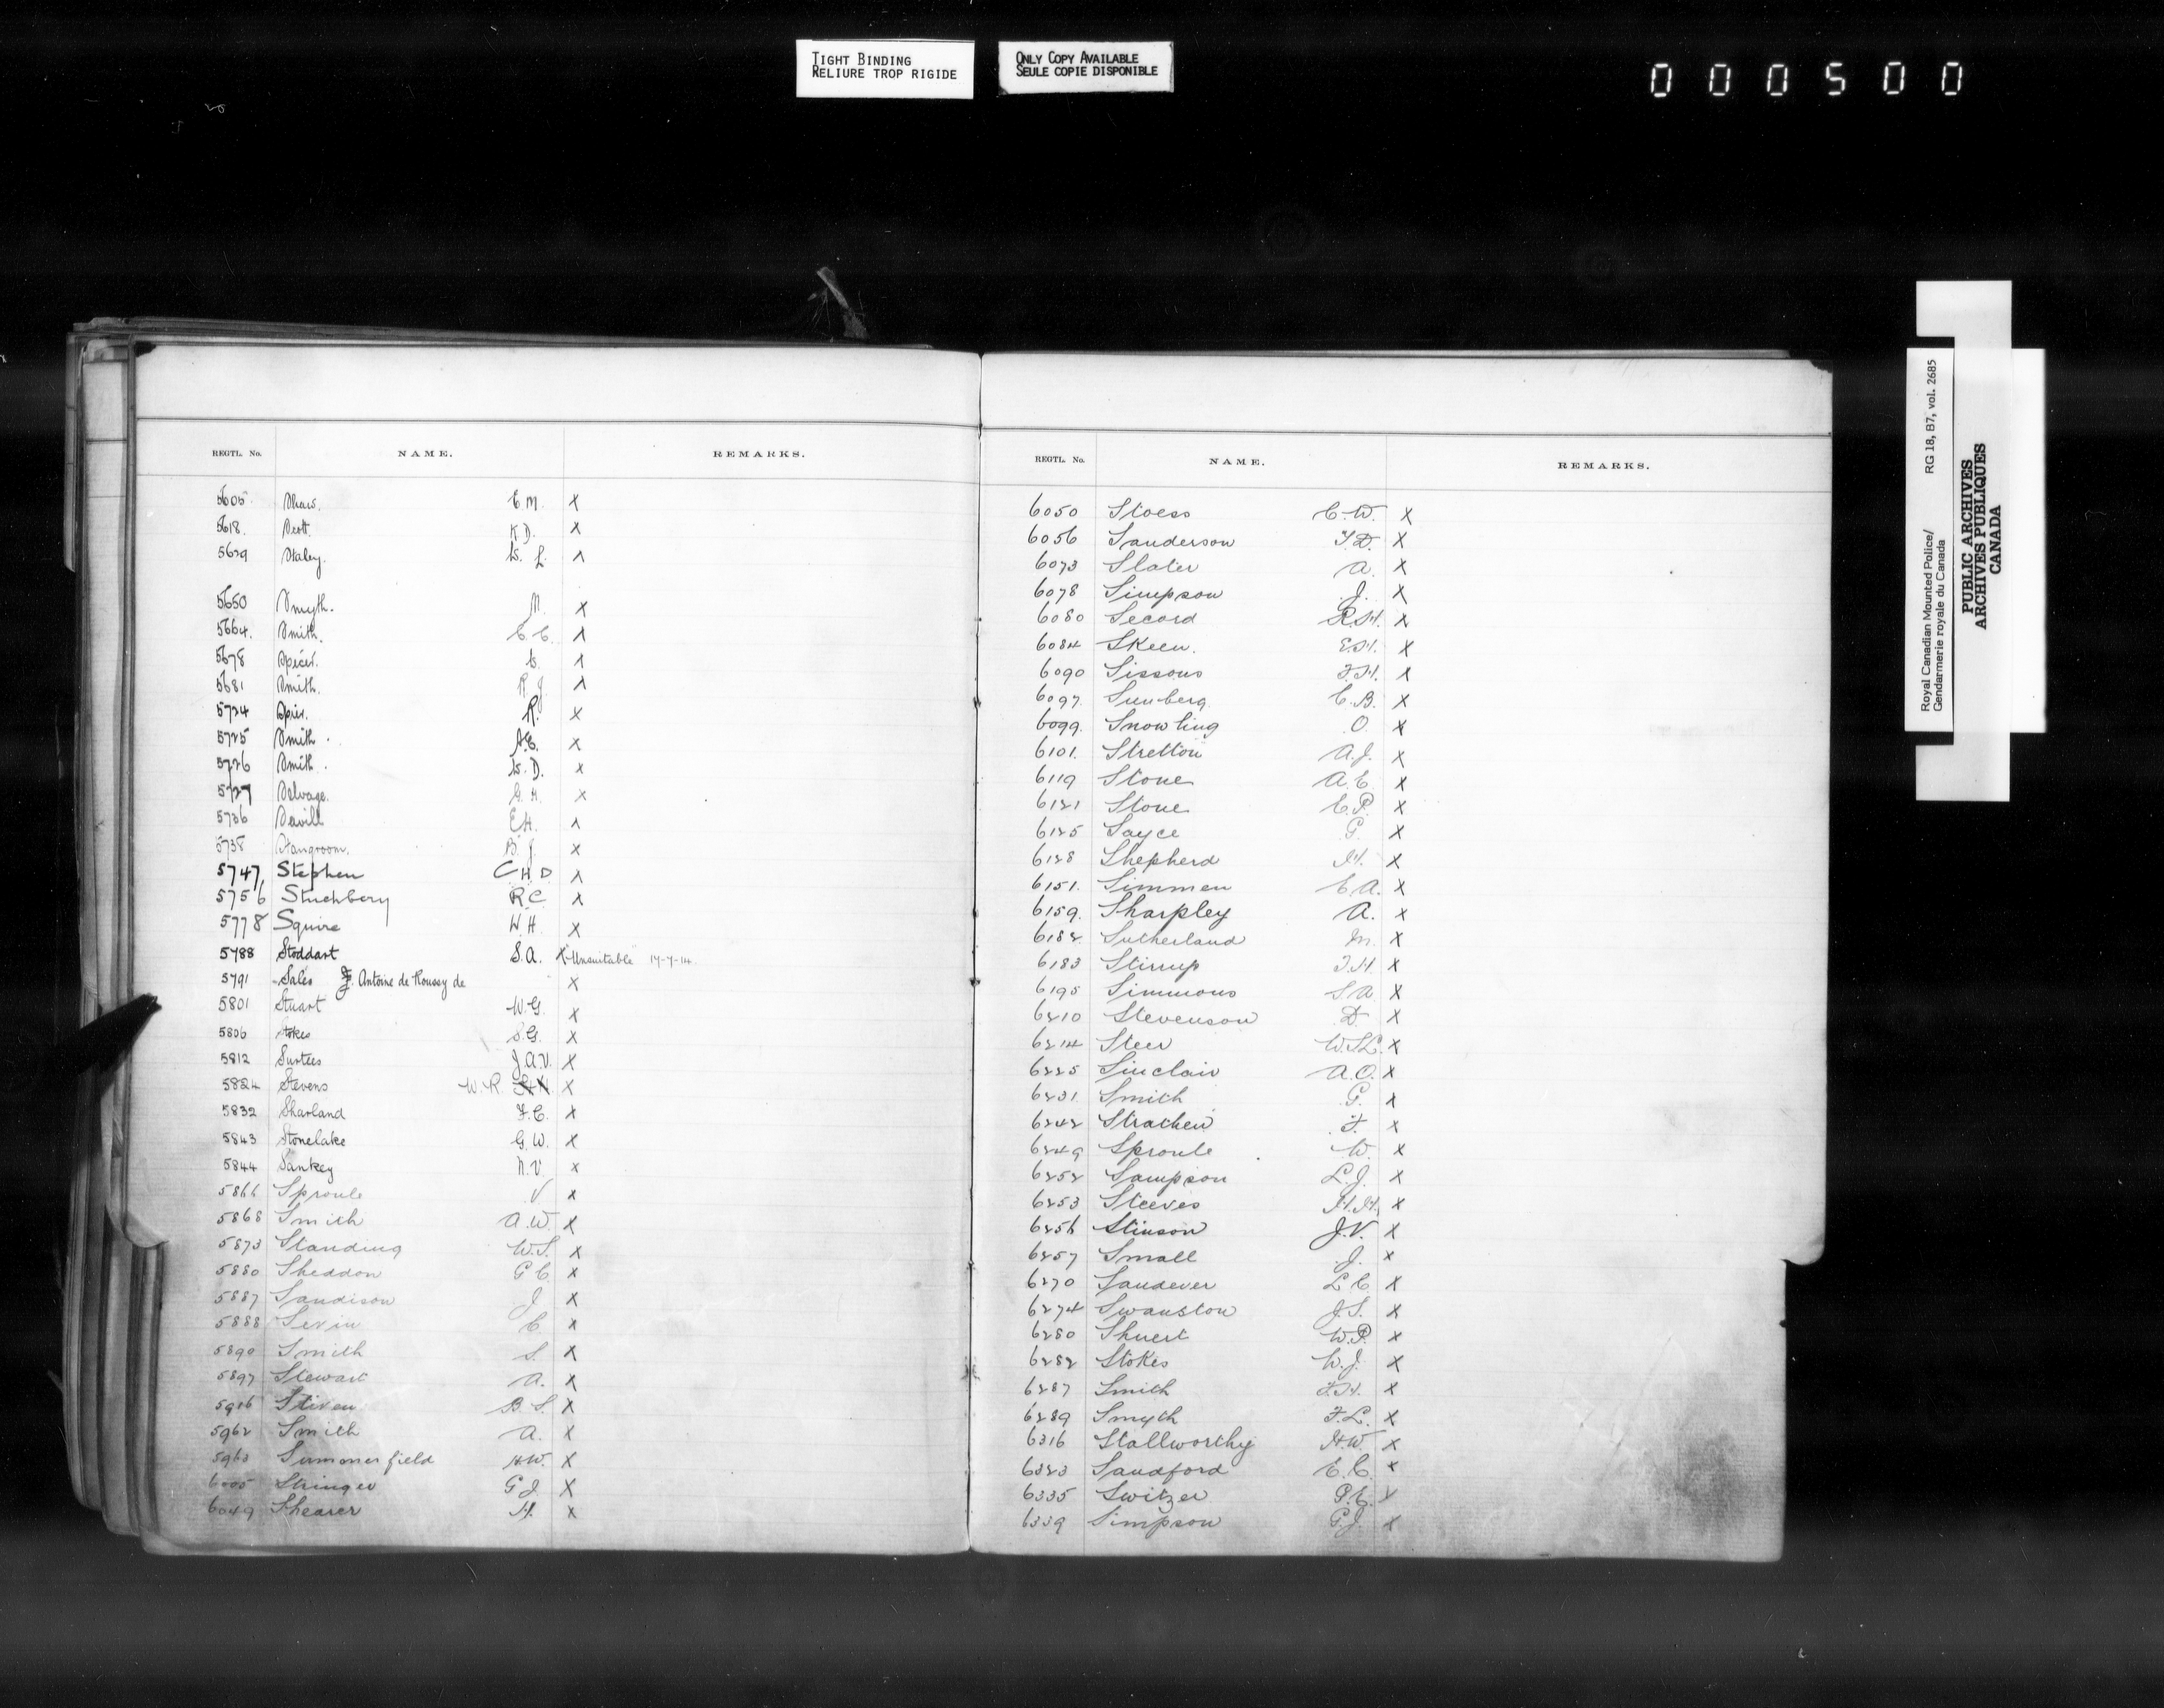 TIGHT BINDING
RELIURE TROP RIGIDE
ONLY COPY AVAILABLE
SEULE COPIE DISPONIBLE
000500
REGTL. No. NAME. REMARKS.
5605 Shaw. E.M. X
5618. Scott. K.D. X
5629 Staley. W. L. X
5650 Smyth. M. X
5664. Smith. C.C. X
5678 Spicer. X
5681 Smith. R.J. X
5724 Spier. R. X
5725 Smith. A.E. X
5726 Smith. W.D. X
5727 Selvage. G.H. X
5736 Savill E.H. X
5738 Stangroom. B.J. X
5747, Stephen C.H.D X
5756 Stuchbery R.C. X
5778 Squire W.H. X
5788 Stoddart S.A. X "Unsuitable" 17-7-14.
5791 Sales F. Antoine de Roussy de X
5801 Stuart W.G. X
5806 Stokes S.G. X
5812 Surtees J.A.V. X
5824 Stevens W.R. X
5832 Sharland F.C. X
5843 Stonelake G.W. X
5844 Sankey N.V. X
5866 Sproule V X
5868 Smith A.W. X
5873 Standing W.S. X
5880 Sheddon G.C. X
5887 Sandison J X
5888 Sevin C X
5890 Smith S. X
5897 Stewart A. X
5916 Stiven B.S. X
5962 Smith A. X
5963 Summerfield H.W. X
6005 Stringer G.J. X
6049 Shearer H. X
REGTL. No. NAME. REMARKS.
6050 Stoess C.W. X
6056 Sanderson T.D. X
6073 Slater A. X
6078 Simpson J. X
6080 Secord R.H. X
6084 Skeen. E.H. X
6090 Sissons F.H. X
6097. Sunberg C.B. X
6099. Snowling O. X
6101. Stretton A.J. X
6119 Stone A.E. X
6121 Stone C.P. X
6125 Sayce G. X
6128 Shepherd H. X
6151. Simmen E.A. X
6159. Sharpley A. X
6182. Sutherland M. X
6183 Stirrup T.H. X
6195 Simmons S.A. X
6210 Stevenson D. X
6214 Steer W.S.L. X
6225 Sinclair A.O. X
6231. Smith G. X
6242 Strachen F. X
6249 Sproule W. X
6252 Sampson L.J. X
6253 Steeves H.H. X
6256 Stinson J.V. X
6257 Small J. X
6270 Sandever L.C. X
6274 Swanston J.S. X
6280 Shuert W.P. X
6282 Stokes W.J. X
6287 Smith F.H. X
6289 Smyth F.L. X
6316 Stallworthy H.W. X
6323 Sandford E.C. X
6335 Switzer P.E. X
6339 Simpson G.J. X
Royal Canadian Mounted Police/ RG 18, B7, vol. 2685
Gendarmerie royale du Canada
PUBLIC ARCHIVES
ARCHIVES PUBLIQUES
CANADA